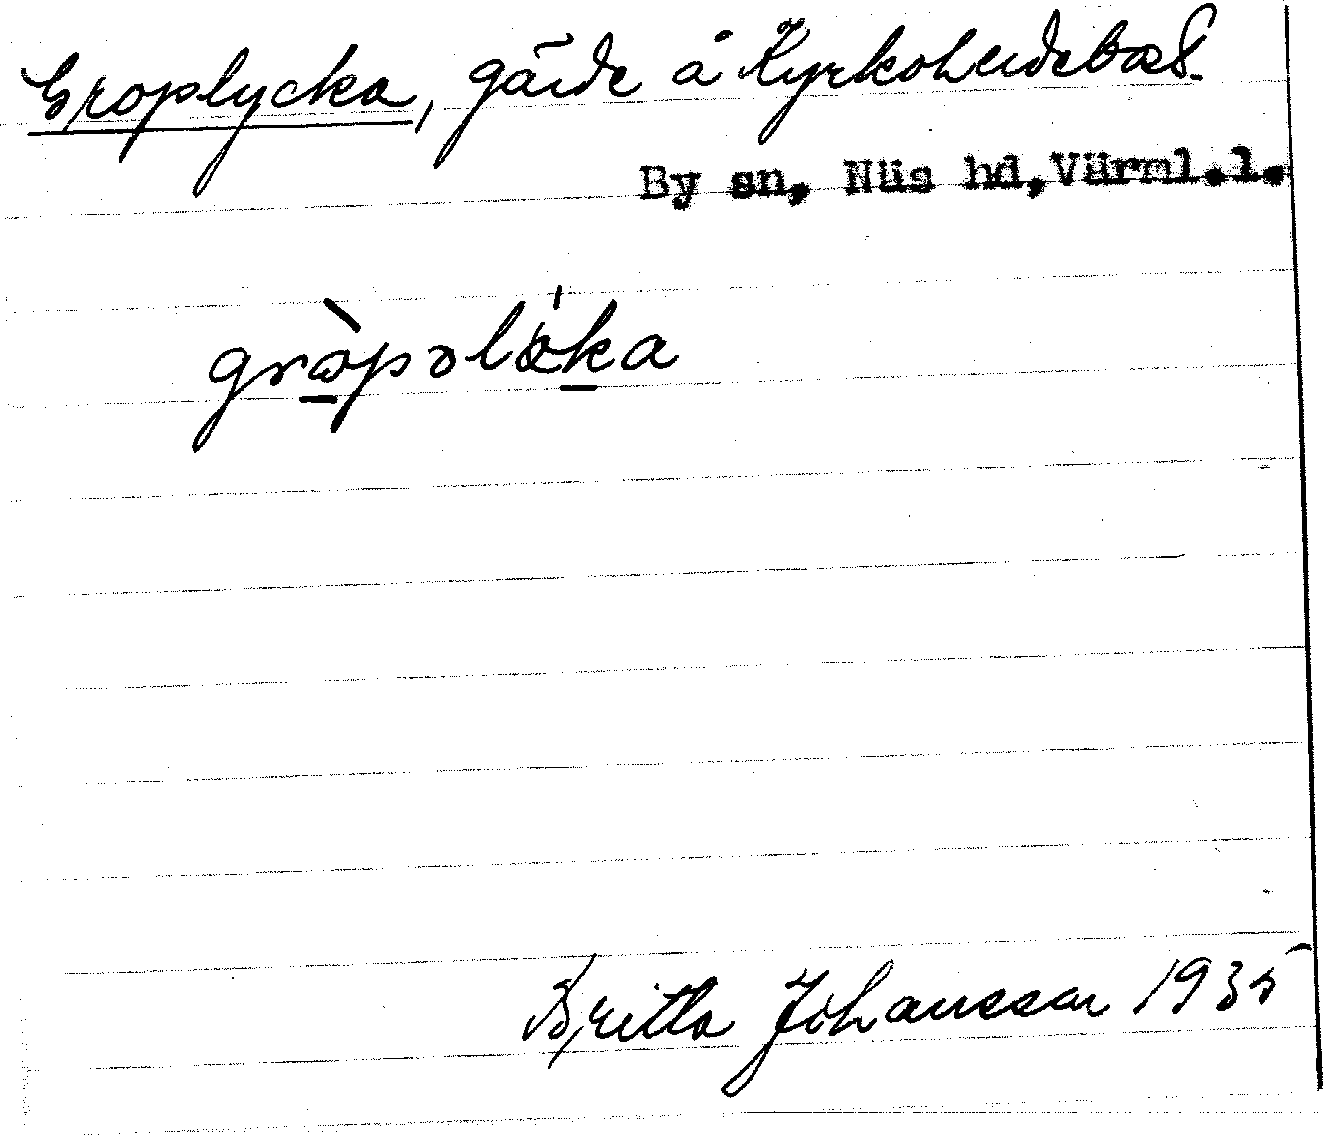 Groplycka, gärde å Kyrkoherdebost.
By sn, Näs hd, Värml.l.
gròpəlǿka
Britta Johansson 1935